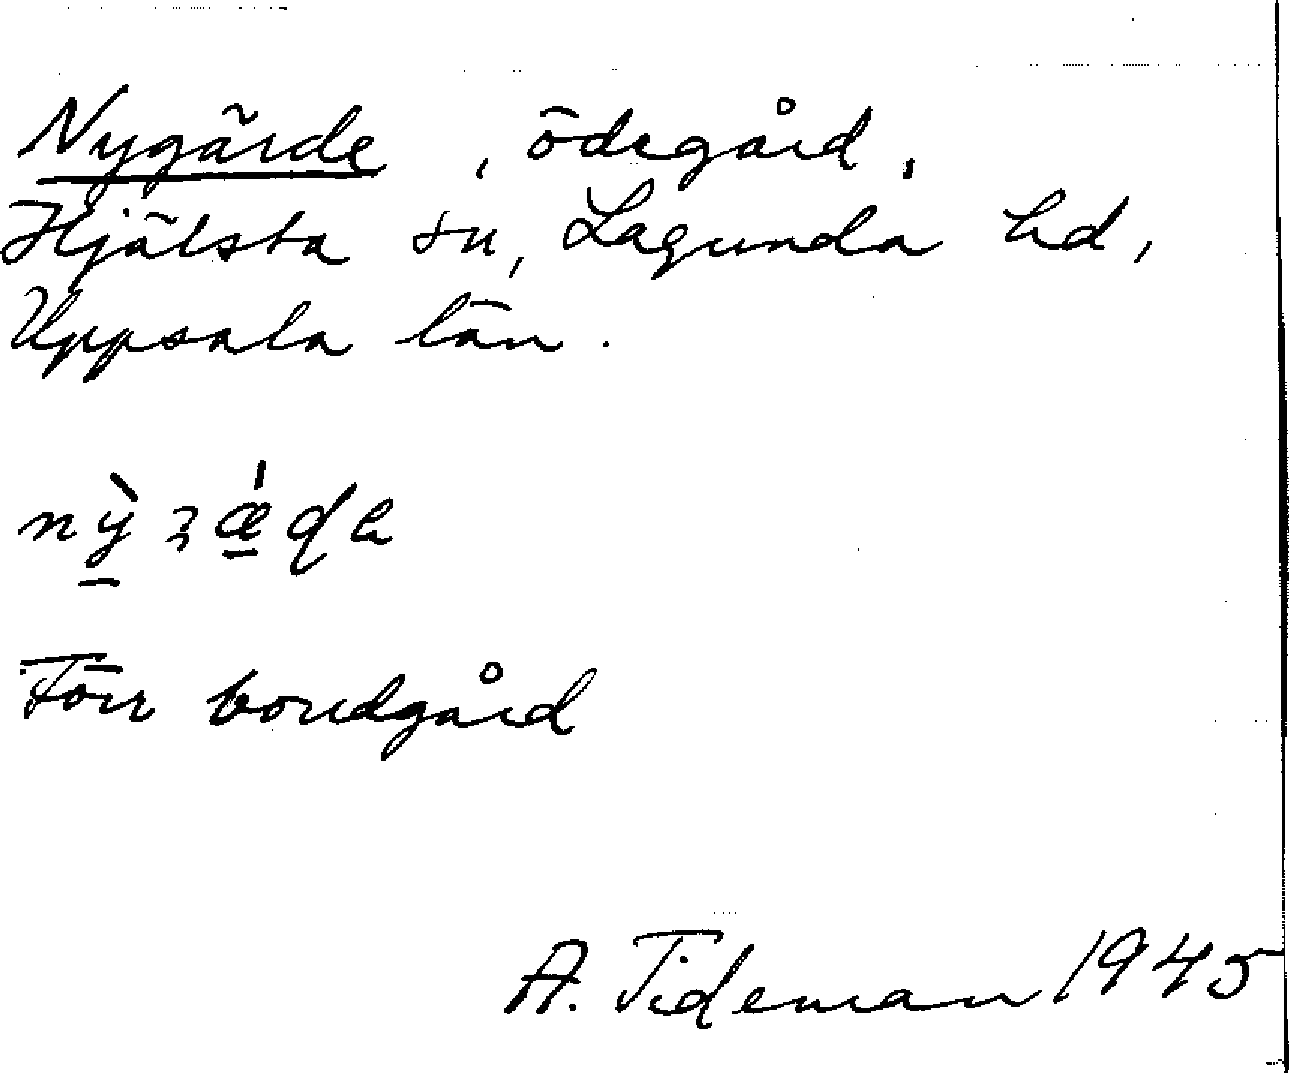 Nygärde, ödegård,
Hjälsta sn, Lagunda hd,
Uppsala län.
Förr bondgård
A. Tideman 1945